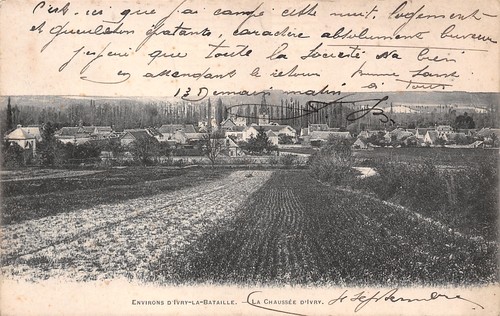 C'est ici que j'ai campé cette nuit, logement
et gueuleton épatants, caractère absolument
que toute la Société va bien
en attendant le retour
Demain matin à tous
ENVIRONS D'IVRY-LA-BATAILLE. — LA CHAUSSÉE D'IVRY.
Septembre